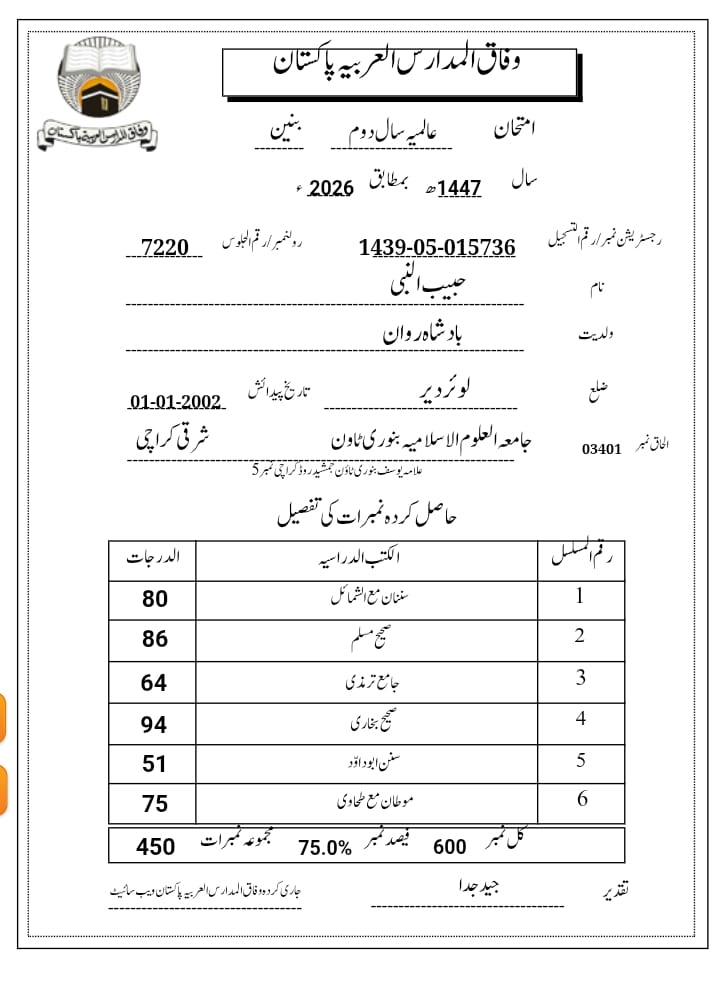 وفاق المدارس العربیہ پاکستان
وفاق المدارس العربیہ پاکستان
امتحان عالمیہ سال دوم بنین
سال 1447ھ بمطابق 2026ء
رجسٹریشن نمبر/رقم التسجیل 1439-05-015736 رولنمبر/رقم الجلوس 7220
نام حبیب النبی
ولدیت بادشاہ روان
ضلع لوئر دیر تاریخ پیدائش 01-01-2002
الحاق نمبر 03401 جامعہ العلوم الاسلامیہ بنوری ٹاون شرقی کراچی
علامہ یوسف بنوری ٹاؤن جمشید روڈ کراچی نمبر 5
حاصل کردہ نمبرات کی تفصیل
رقم المسلسل الکتب الدراسیہ الدرجات
1 سننان مع الشمائل 80
2 صحیح مسلم 86
3 جامع ترمذی 64
4 صحیح بخاری 94
5 سنن ابوداؤد 51
6 موطان مع طحاوی 75
کل نمبر 600 فیصد نمبر 75.0% مجموعہ نمبرات 450
تقدیر جید جدا جاری کردہ وفاق المدارس العربیہ پاکستان ویب سائیٹ